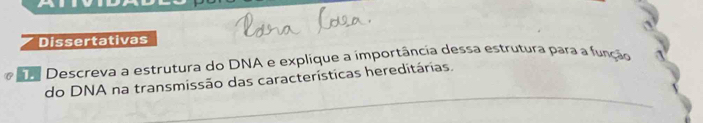 ATIVIDADES
Para Casa.
Dissertativas
1. Descreva a estrutura do DNA e explique a importância dessa estrutura para a função
do DNA na transmissão das características hereditárias.